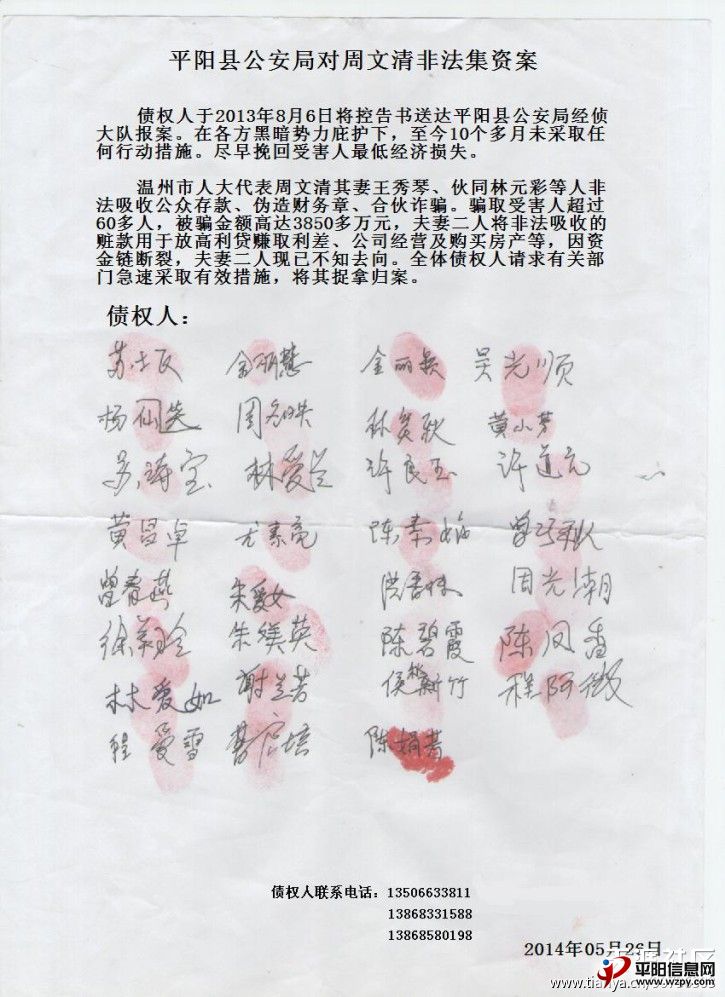 平阳县公安局对周文清非法集资案
债权人于2013年8月6日将控告书送达平阳县公安局经侦
大队报案。在各方黑暗势力庇护下，至今10个多月未采取任
何行动措施。尽早挽回受害人最低经济损失。
温州市人大代表周文清其妻王秀琴、伙同林元彩等人非
法吸收公众存款、伪造财务章、合伙诈骗。骗取受害人超过
60多人，被骗金额高达3850多万元，夫妻二人将非法吸收的
赃款用于放高利贷赚取利差、公司经营及购买房产等，因资
金链断裂，夫妻二人现已不知去向。全体债权人请求有关部
门急速采取有效措施，将其捉拿归案。
债权人：
金丽慧 金丽敏 吴光顺
杨仙笑 黄小芳
林爱兰 许良玉 许道元
黄昌卓 尤素亮
曾春燕 朱爱女 周光潮
陈碧霞 陈凤香
林爱如 谢兰芳 侯新竹 程阿微
程爱雪 陈娟芳
债权人联系电话：13506633811
13868331588
13868580198
2014年05月26日
平阳信息网
www.wzpy.com